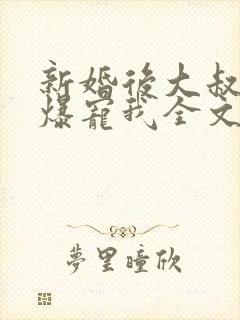 新婚後大叔
爆寵我全文
夢里瞳欣